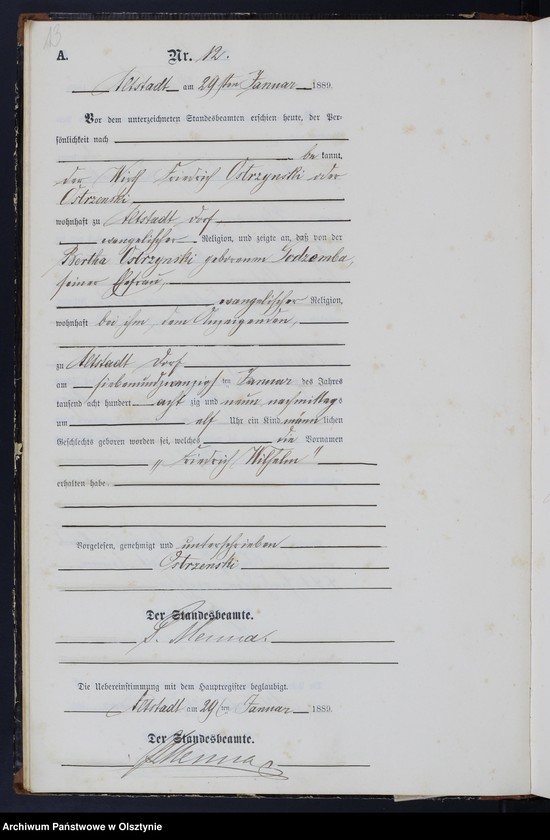 13
A.
Nr. 12.
Altstadt am 29ten Januar 1889.
Vor dem unterzeichneten Standesbeamten erschien heute, der Per-
sönlichkeit nach
be kannt,
der Wirth Friedrich Ostrzynski oder
Ostrzenski
wohnhaft zu Altstadt Dorf
evangelischer Religion, und zeigte an, daß von der
Bertha Ostrzynski geborenen Godzemba,
seiner Ehefrau,
evangelischer Religion,
wohnhaft bei ihm dem Anzeigenden,
zu Altstadt Dorf
am siebenundzwanzigsten Januar des Jahres
tausend acht hundert acht zig und neun nachmittags
um elf Uhr ein Kind männlichen
Geschlechts geboren worden sei, welches die Vornamen
„Friedrich Wilhelm"
erhalten habe.
Vorgelesen, genehmigt und unterschrieben
Ostrzenski
Der Standesbeamte.
Menna.
Die Uebereinstimmung mit dem Hauptregister beglaubigt.
Altstadt am 29ten Januar 1889.
Der Standesbeamte.
Menna
Archiwum Państwowe w Olsztynie